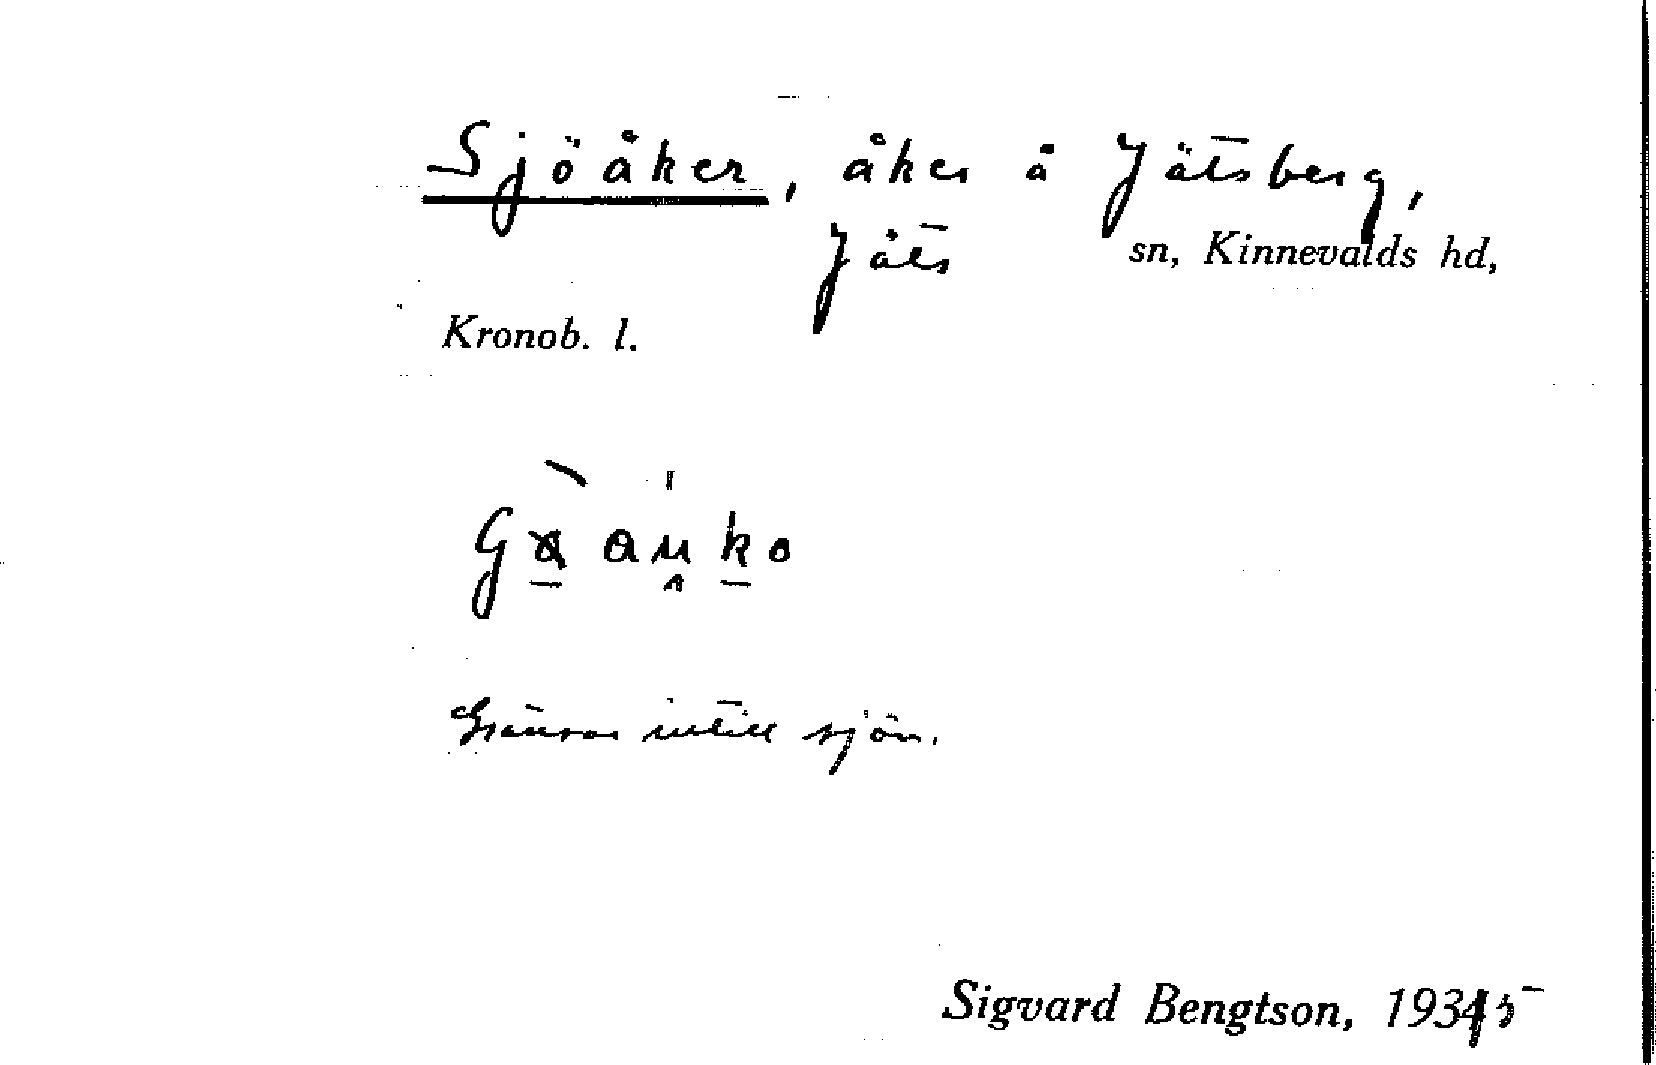 Sjöåker, åker å Jätsberg,
Jäts sn, Kinnevalds hd,
Kronob. l.
Gränsar intill sjön.
Sigvard Bengtson, 1935